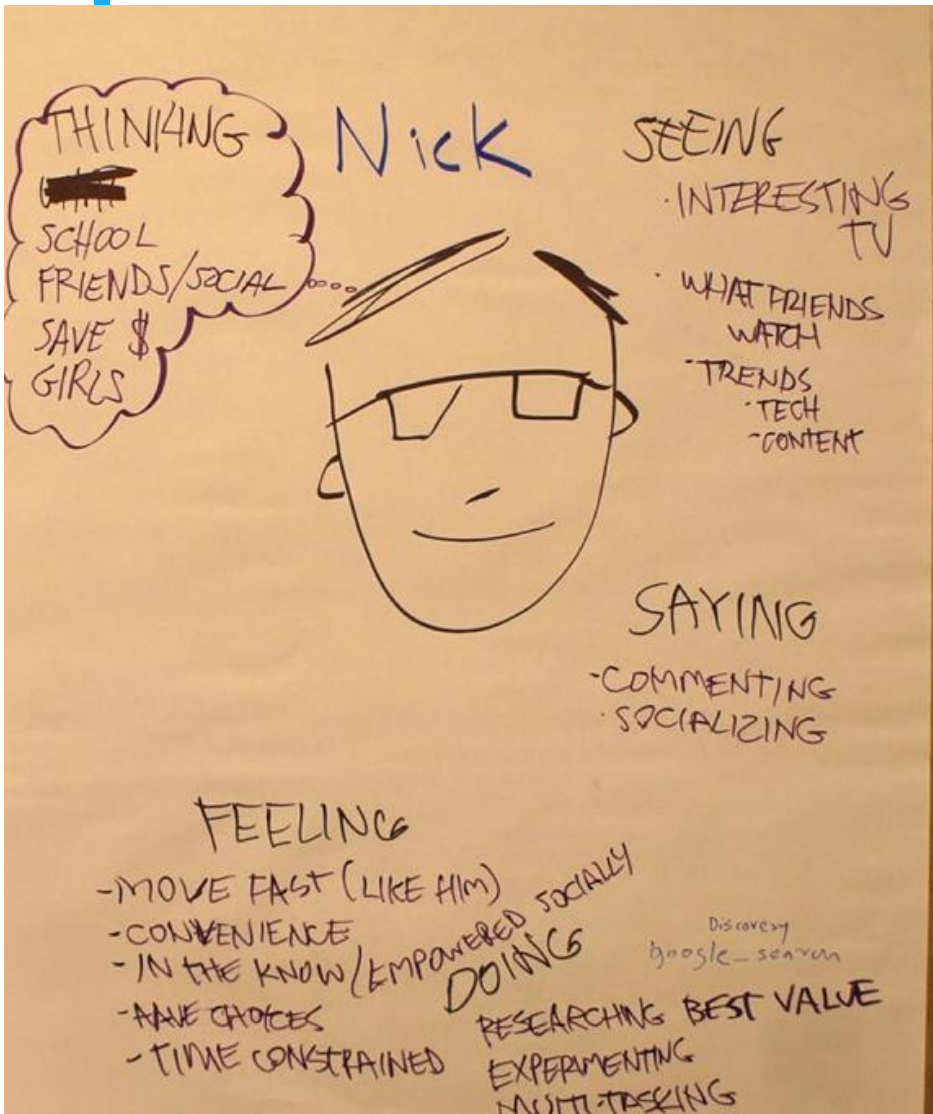 THINKING
SCHOOL
FRIENDS/SOCIAL
SAVE $
GIRLS
Nick
SEEING
· INTERESTING
TV
· WHAT FRIENDS
WATCH
- TRENDS
· TECH
- CONTENT
SAYING
- COMMENTING
· SOCIALIZING
FEELING
- MOVE FAST (LIKE HIM)
- CONVENIENCE
- IN THE KNOW/EMPOWERED SOCIALLY
- HAVE CHOICES
- TIME CONSTRAINED
DOING
Discovery
google_search
RESEARCHING BEST VALUE
EXPERIMENTING
MULTI-TASKING